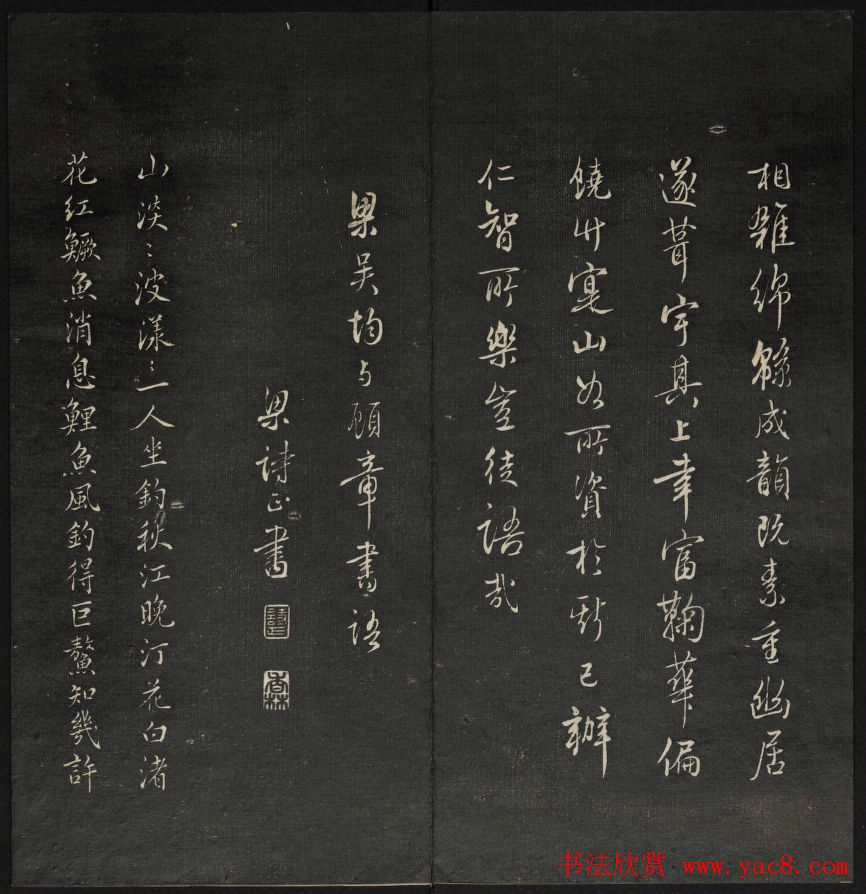 相雜綿緜成韻既素重幽居
遂葺宇其上幸富鞠華偏
饒竹寔山如所資於斯已辦
仁智所樂豈徒語哉
梁吳均与顧章書語
梁詩正書
山淡〻波漾〻一人坐釣秋江晚汀花白渚
花紅鱖魚消息鯉魚風釣得巨鰲知幾許
书法欣赏 www.yac8.com